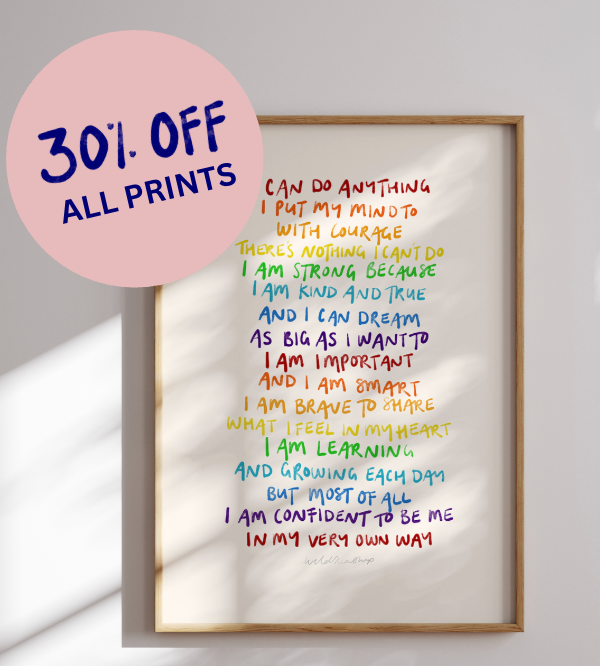 30% OFF
ALL PRINTS
CAN DO ANYTHING
I PUT MY MIND TO
WITH COURAGE
THERE'S NOTHING I CAN'T DO
I AM STRONG BECAUSE
I AM KIND AND TRUE
AND I CAN DREAM
AS BIG AS I WANT TO
I AM IMPORTANT
AND I AM SMART
I AM BRAVE TO SHARE
WHAT I FEEL IN MY HEART
I AM LEARNING
AND GROWING EACH DAY
BUT MOST OF ALL
I AM CONFIDENT TO BE ME
IN MY VERY OWN WAY